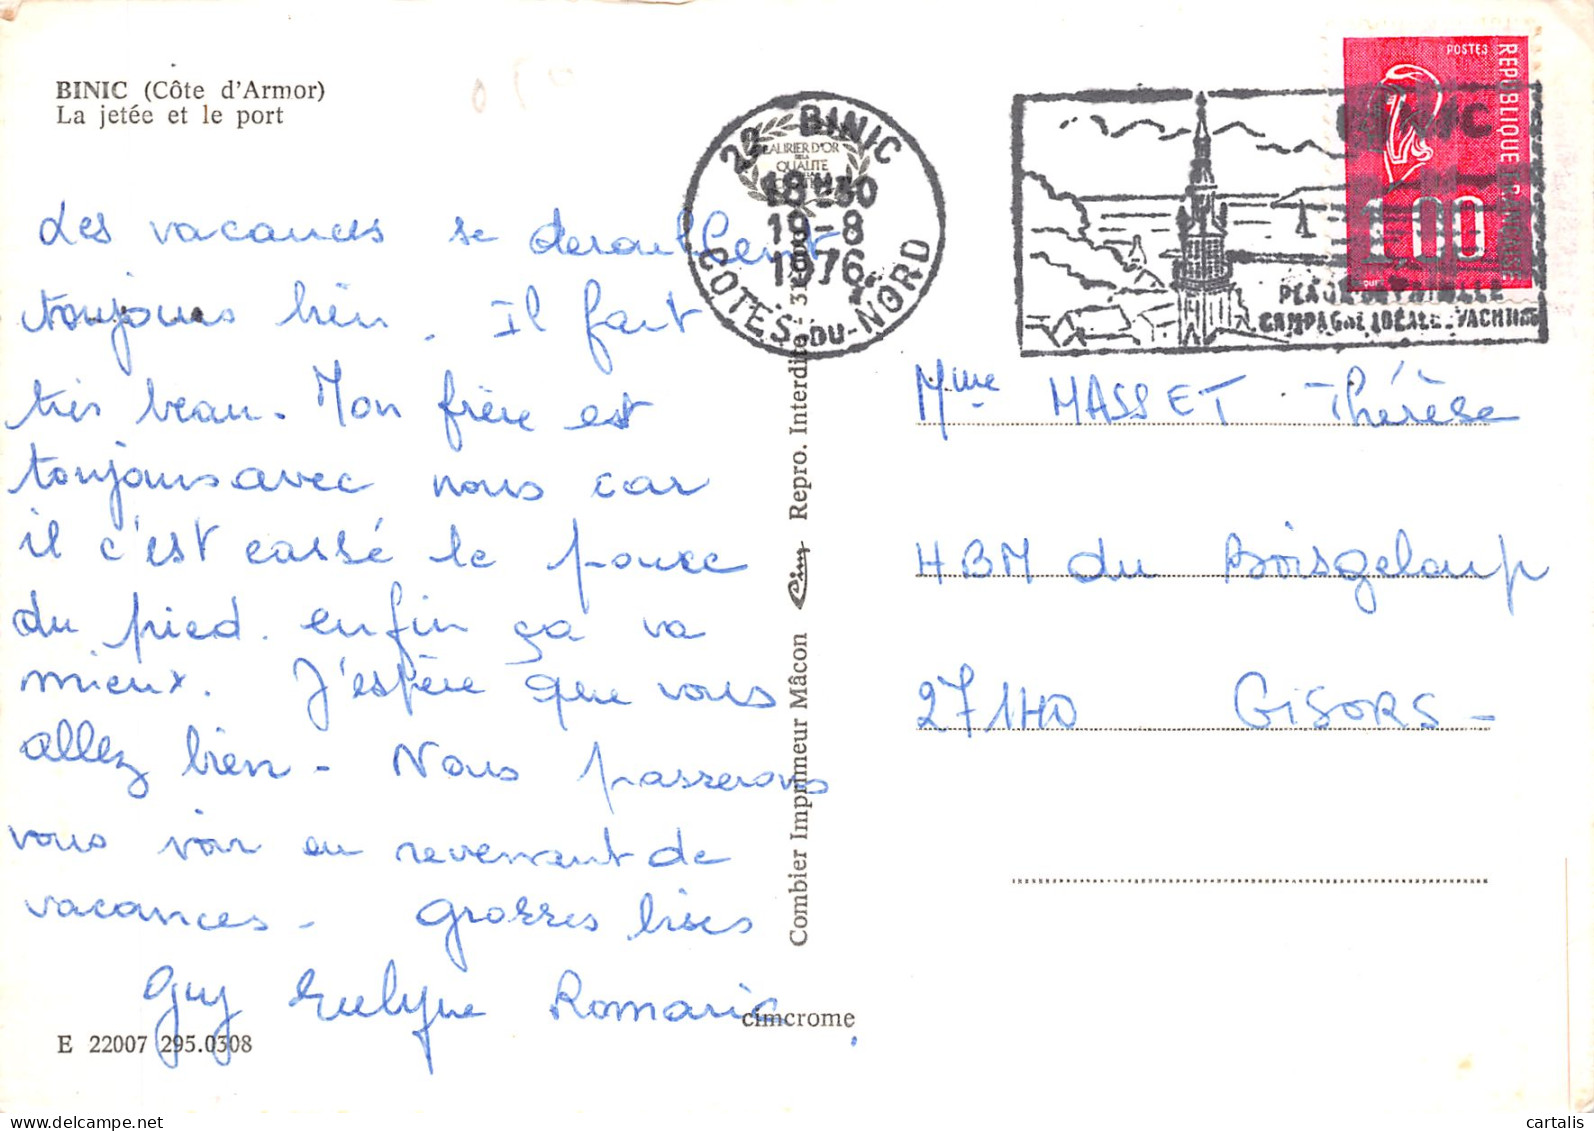 BINIC (Côte d'Armor)
La jetée et le port
Les vacances se deroullent
toujours bien. Il fait
très beau. Mon frère est
toujours avec nous car
il c'est cassé le pouce
du pied. enfin ça va
mieux. J'espère que vous
allez bien - Nous passerons
vous voir en revenant de
vacances - grosses bises
Guy Evelyne Romaric
E 22007 295.0308
cimcrome
Combier Imprimeur Mâcon Cim Repro. Interdite
22 BINIC
LAURIER D'OR
DE LA
QUALITE
18H30
19-8
1976
COTES-DU-NORD
BINIC
PLAGE FAMILLE
CAMPAGNE IDEALE - YACHTING
POSTES
REPUBLIQUE FRANÇAISE
1,00
Mme MASSET Thérèse
HBM du Boisgeloup
27140 GISORS -
cartalis
www.delcampe.net